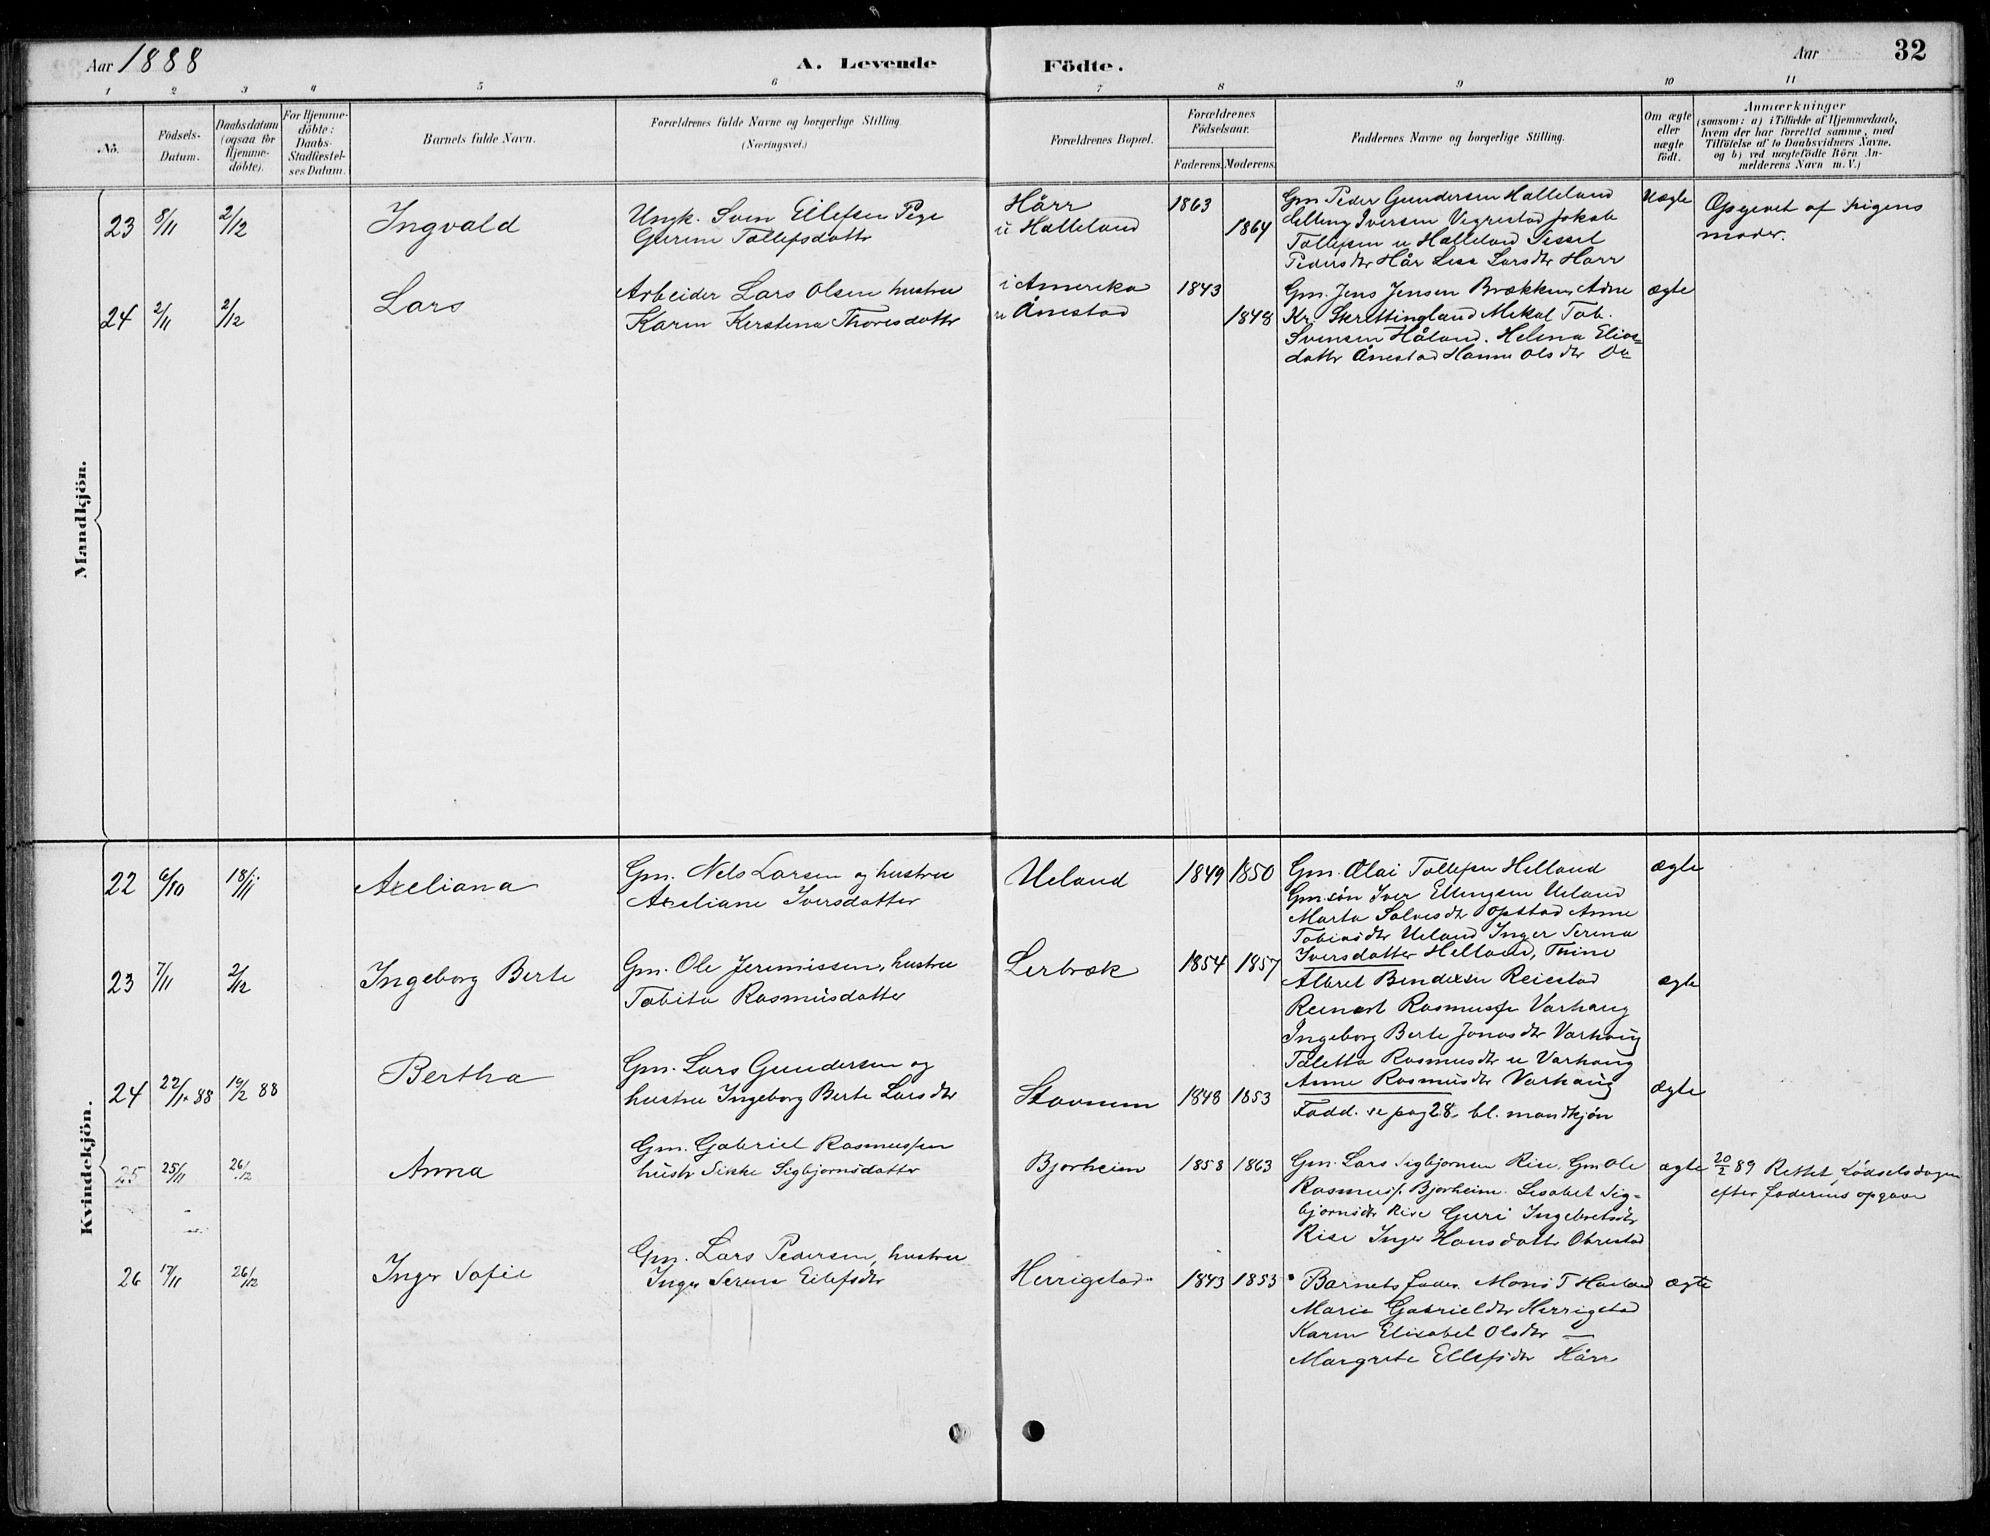 Aar 1888
A. Levende
Födte.
Aar
32
1 2 3 4 5 6 7 8 9 10 11
No.
Födsels-Datum.
Daabsdatum (ogsaa for Hjemme-döbte).
For Hjemme-döbte: Daabs-Stadfestel-ses Datum.
Barnets fulde Navn.
Forældrenes fulde Navne og borgerlige Stilling.
(Næringsvei.)
Forældrenes Bopæl.
Forældrenes Födselsaar.
Faderens. Moderens.
Faddernes Navne og borgerlige Stilling.
Om ægte eller uægte födt.
Anmærkninger
(saasom: a) i Tilfælde af Hjemmedaab,
hvem der har forrettet samme, med
Tilföielse af to Daabsvidners Navne,
og b) ved uægtefödte Börn An-
melderens Navn m. V.)
Mandkjön.
23 8/11 2/12 Ingvald
Ungk. Sven Eilefsen Pige
Gurine Tollefsdatter
Hårr
u Halleland
1863
1864
Gm Peder Gundersen Halleland
Elling Iversen Vigrestad Jakob
Tollefsen u Halleland Sissel
Pedersdtr Hår Lise Larsdtr Harr
Uægte
Opgivet af Pigens
moder.
24 2/11 2/12 Lars
Arbeider Lars Olsen hustru
Karen Kerstena Thoresdatter
i Amerika
u Ånestad
1843
1848
Gm. Jens Jensen Brækken Adne
Kr. Skrettingland Mikal Tob.
Svensen Håland. Helena Elias=
datter Ånestad Hanne Olsdtr Do
ægte
Kvindekjön.
22 6/10 18/11 Axeliana
Gm. Nels Larsen og hustru
Axeliane Iversdatter
Ueland
1849 1850
Gm. Olai Tollefsen Helland
Gmsøn Iver Ellingsen Ueland
Marta Salvesdtr Opstad Anne
Tobiasdtr Ueland Inger Serina
Iversdatter Helland, Trine
ægte
23 7/11 2/12 Ingeborg Berte
Gm. Ole Jeremissen, hustru
Tobita Rasmusdatter
Lerbræk
1854 1857
Albret Bendixen Reiestad
Reinert Rasmusse Varhaug
Ingeborg Berte Jonasdtr Varhaug
Taletta Rasmusdtr u Varhaug
Anne Rasmusdtr Varhaug
ægte
24 22/1 88 19/2 88 Bertha
Gm. Lars Gundersen og
hustru Ingeborg Berte Larsdtr
Stavnem
1848 1853
Fadd. se pag 28. bl. mandkjøn
ægte
25 25/11 26/12 Anna
Gm. Gabriel Rasmussen
hustr Sikke Sigbjørnsdatter
Bjorheim
1858 1863
Gm. Lars Sigbjørnsen Rise, Gm Ole
Rasmuss. Bjorheim. Lisabet Sig=
bjørnsdtr Rise Guri Ingebretsdtr
Rise Inger Hansdatter Obrestad
ægte
20/2 89 Rettet Fødselsdagen
efter faderens opgave
26 17/11 26/12 Inger Sofie
Gm. Lars Pedersen, hustru
Inger Serine Eilefsdtr
Herrigstad
1843 1853
Barnets fader. Mons T Haaland
Marie Gabrieldtr Herrigstad
Karen Elisabet Olsdtr —
Margrete Ellefsdtr Hårr
ægte